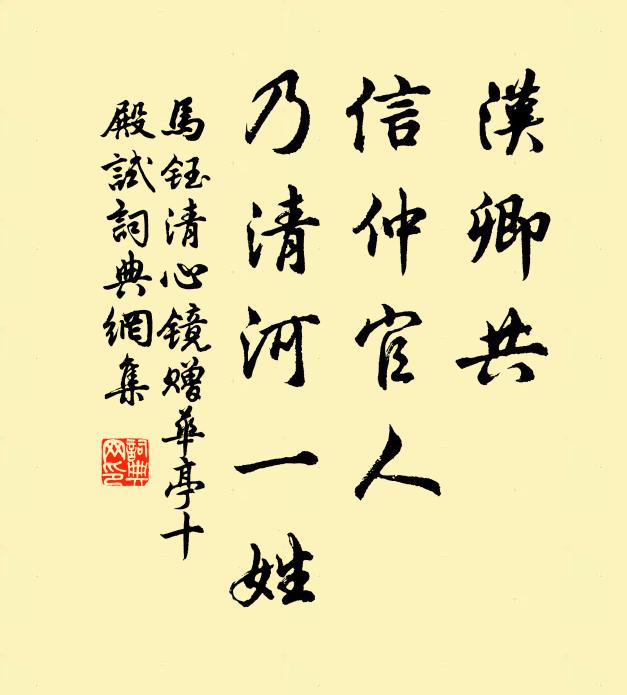 漢卿共
信仲官人
乃清河一姓
馬鈺清心鏡贈華亭十
殿試詞典網集
詞典網印